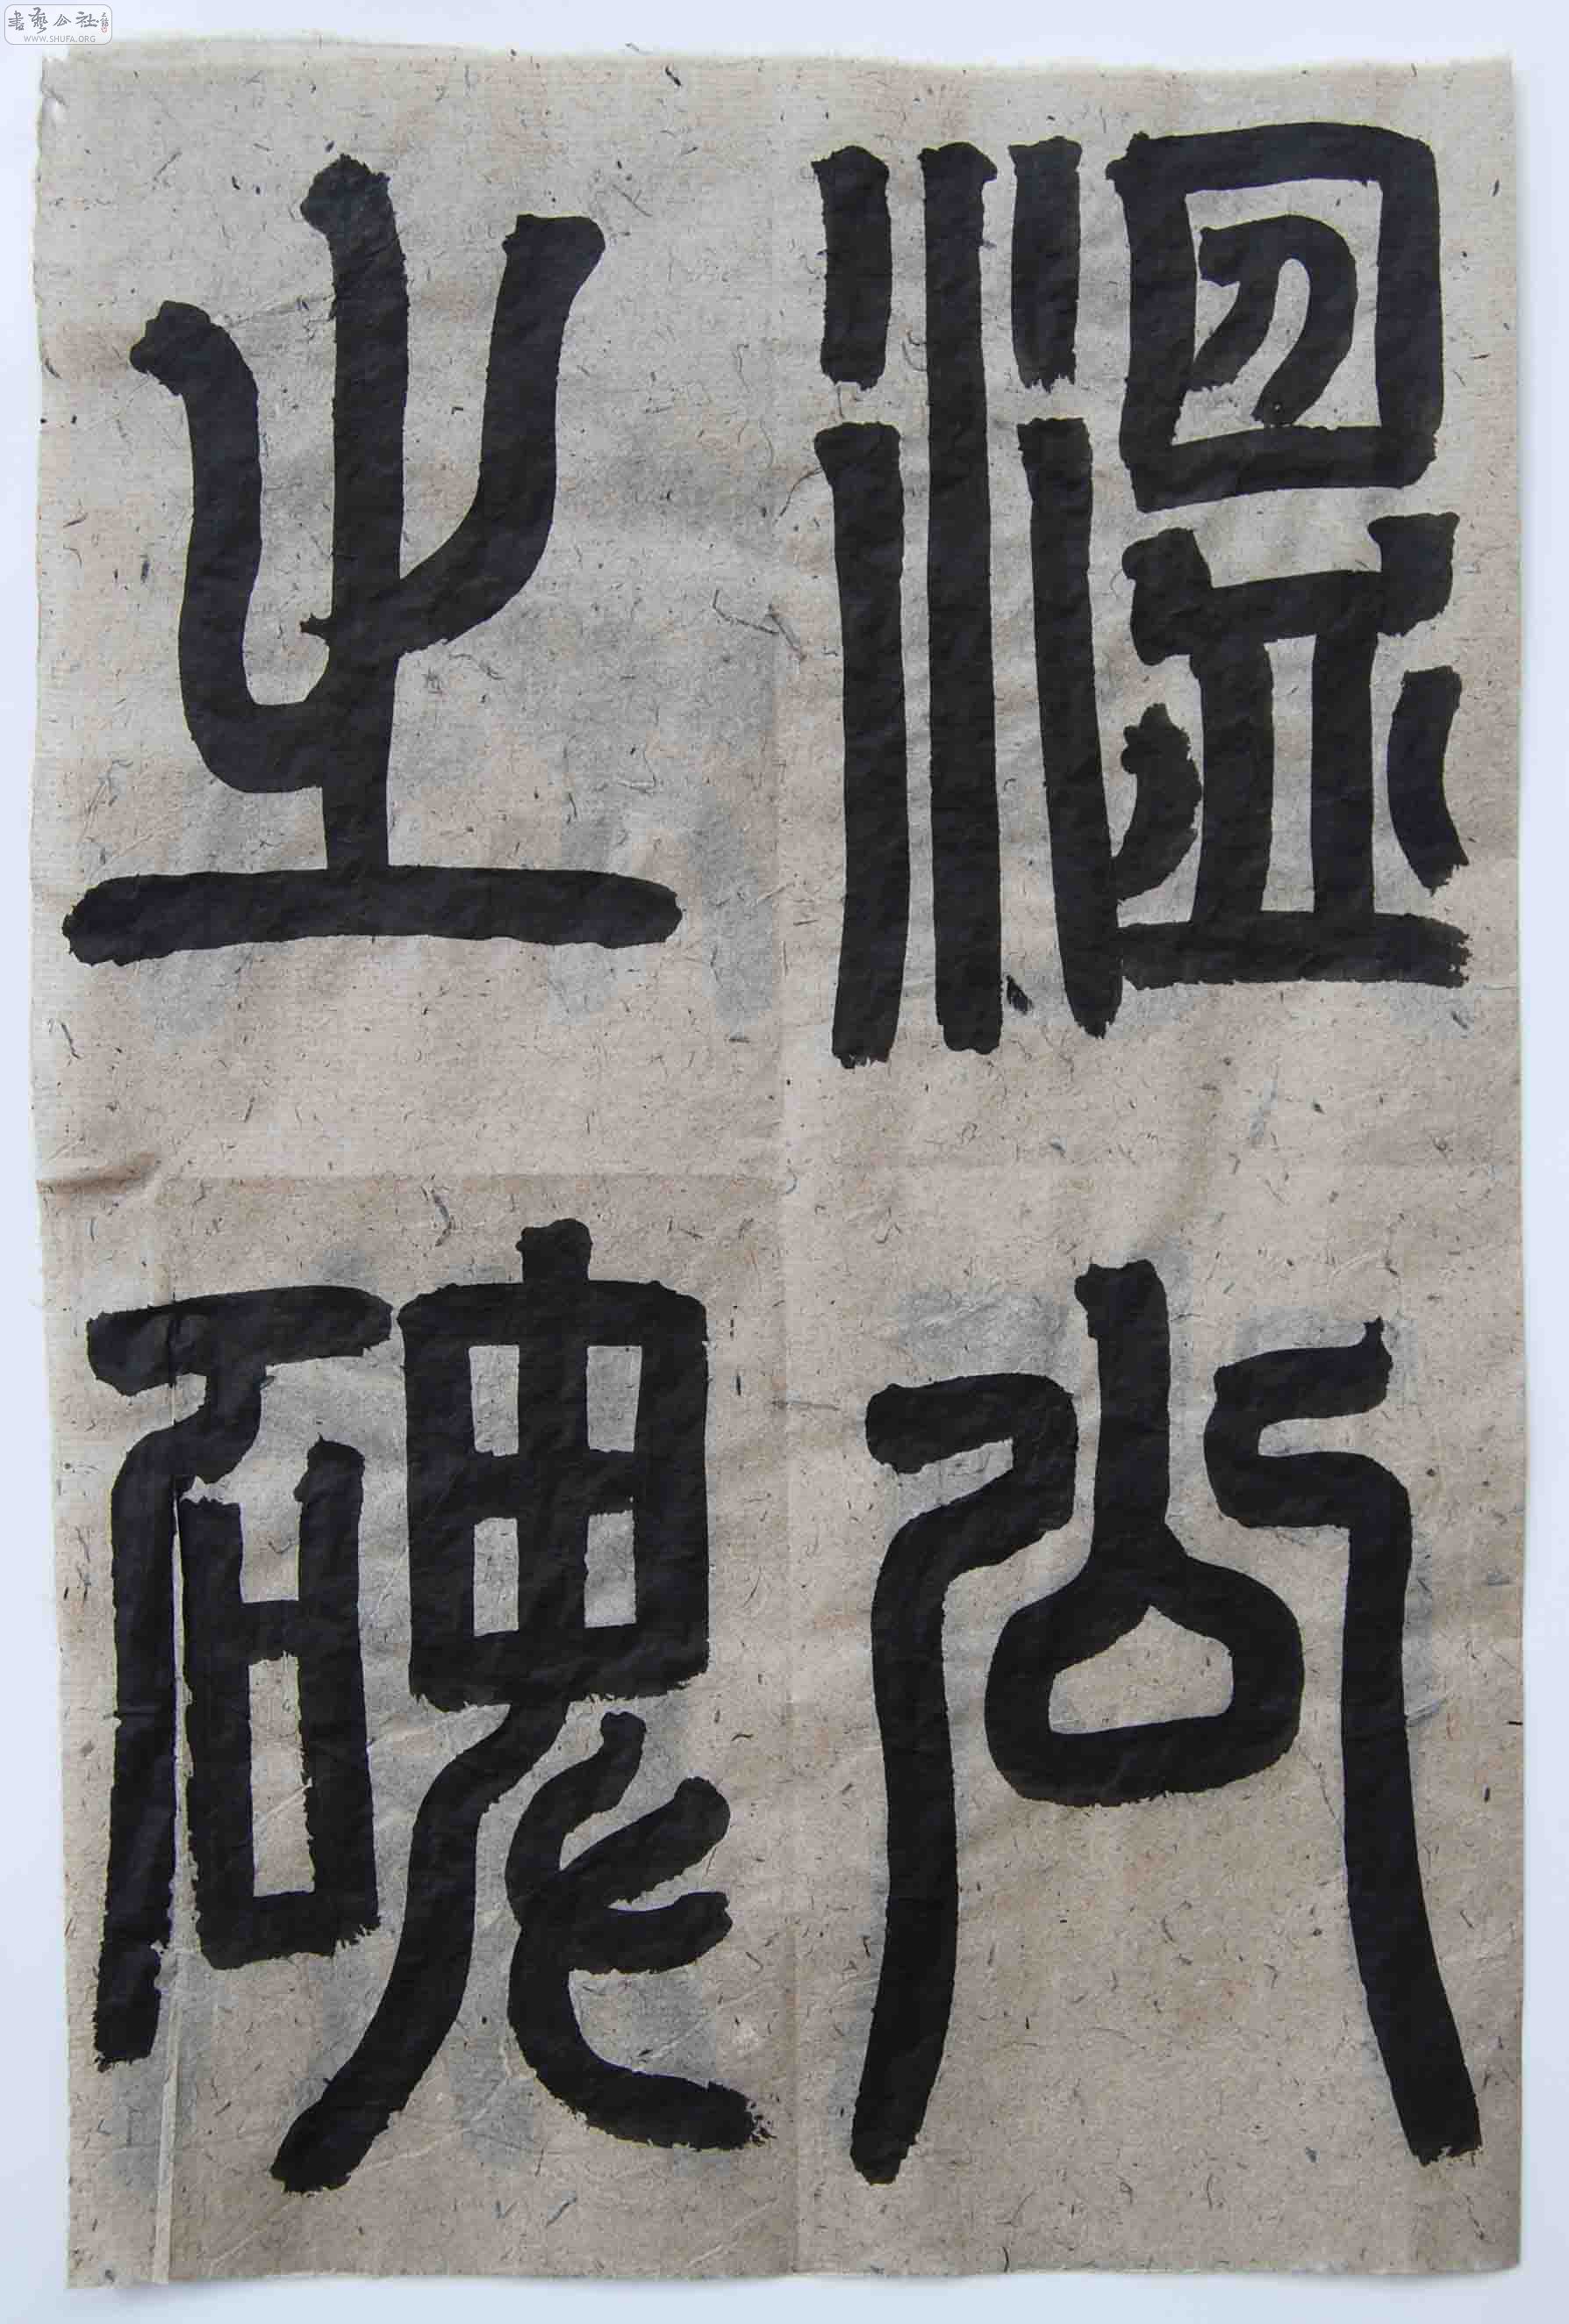 書藝公社
WWW.SHUFA.ORG
溫公
之碑